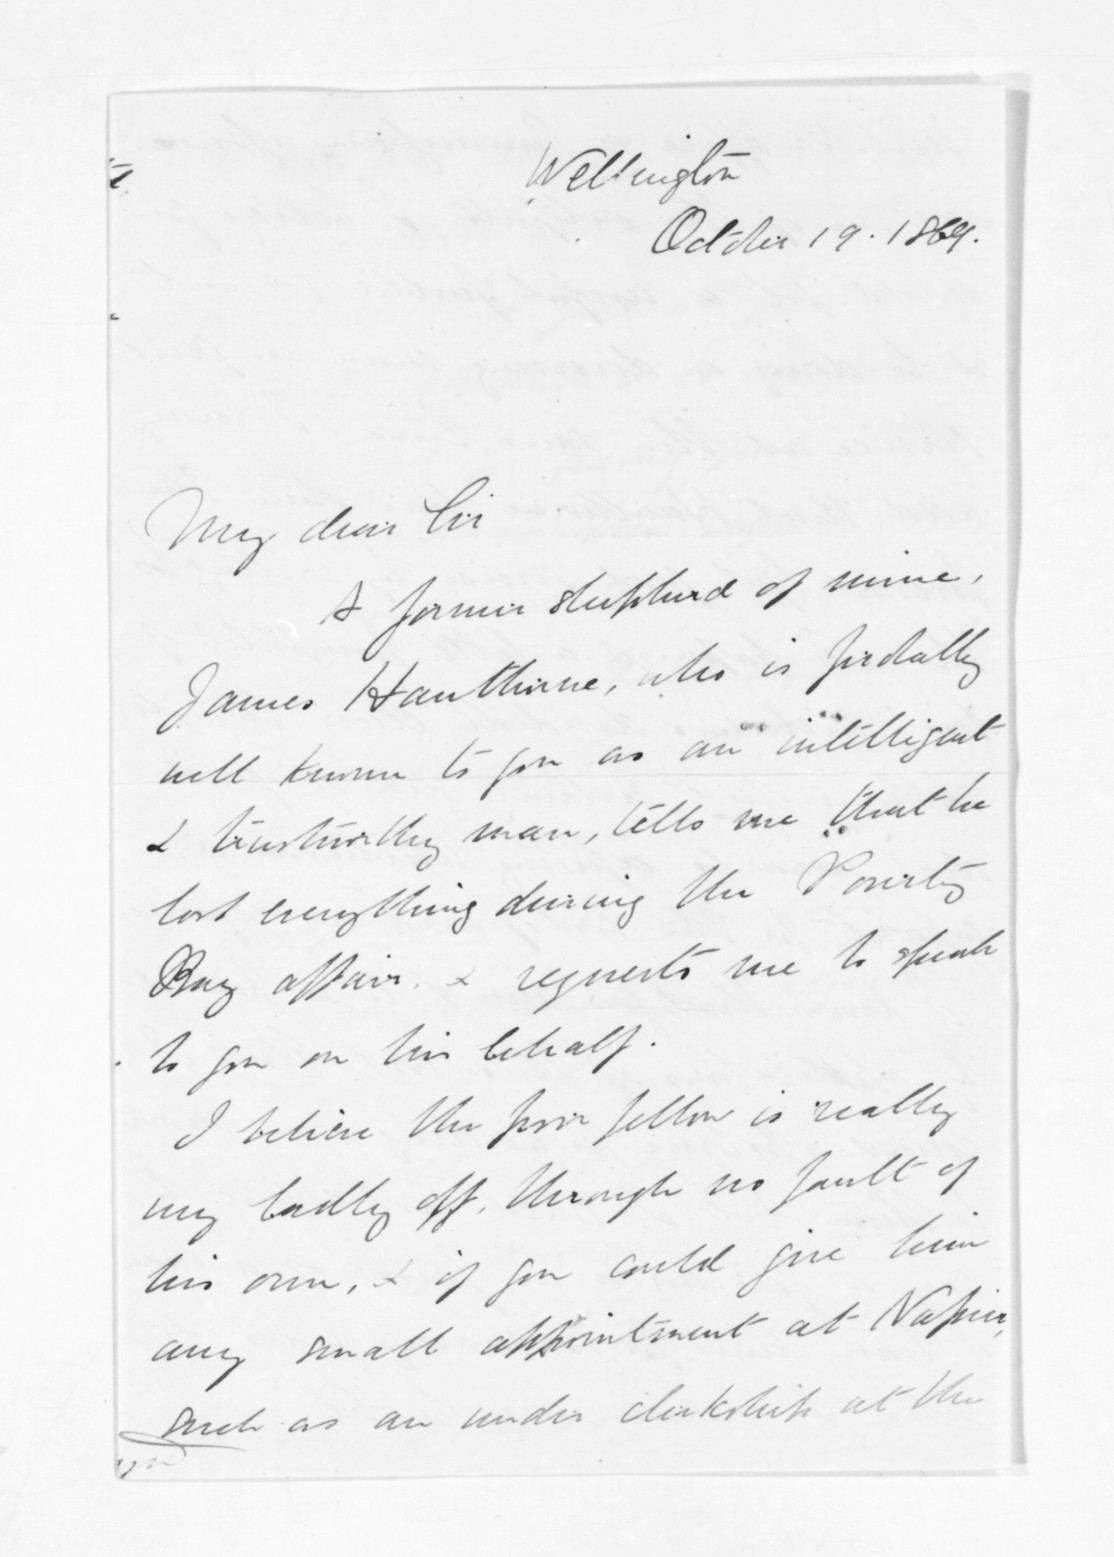 Wellington
October 19. 1869.
My dear Sir
A former shepherd of mine,
James Hawthorne, who is probably
well known to you as an intelligent
& trustworthy man, tells me that he
lost everything during the Poverty
Bay affair, & requests me to speak
to you on his behalf.
I believe the poor fellow is really
very badly off, through no fault of
his own, & if you could give him
any small appointment at Napier,
such as an under clerkship at the